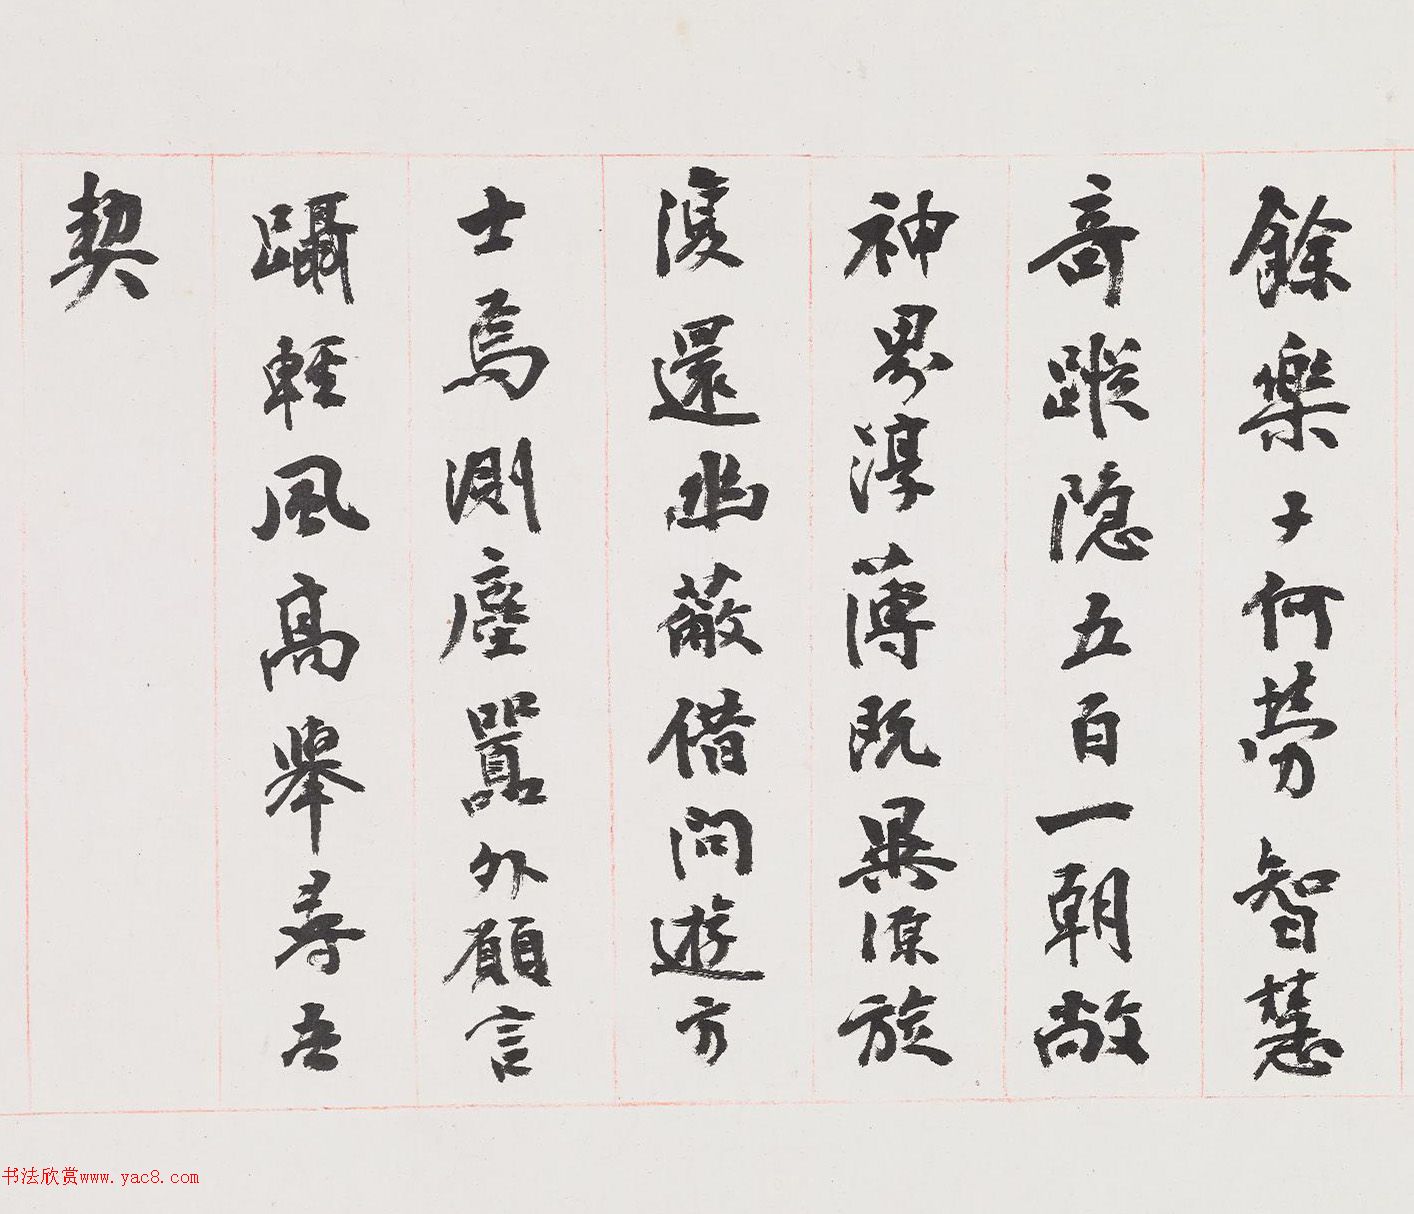 餘樂于何勞智慧
奇蹤隱五百一朝敞
神界淳薄既異源旋
復還幽蔽借問遊方
士焉測塵囂外願言
躡輕風高舉尋吾
契
书法欣赏www.yac8.com